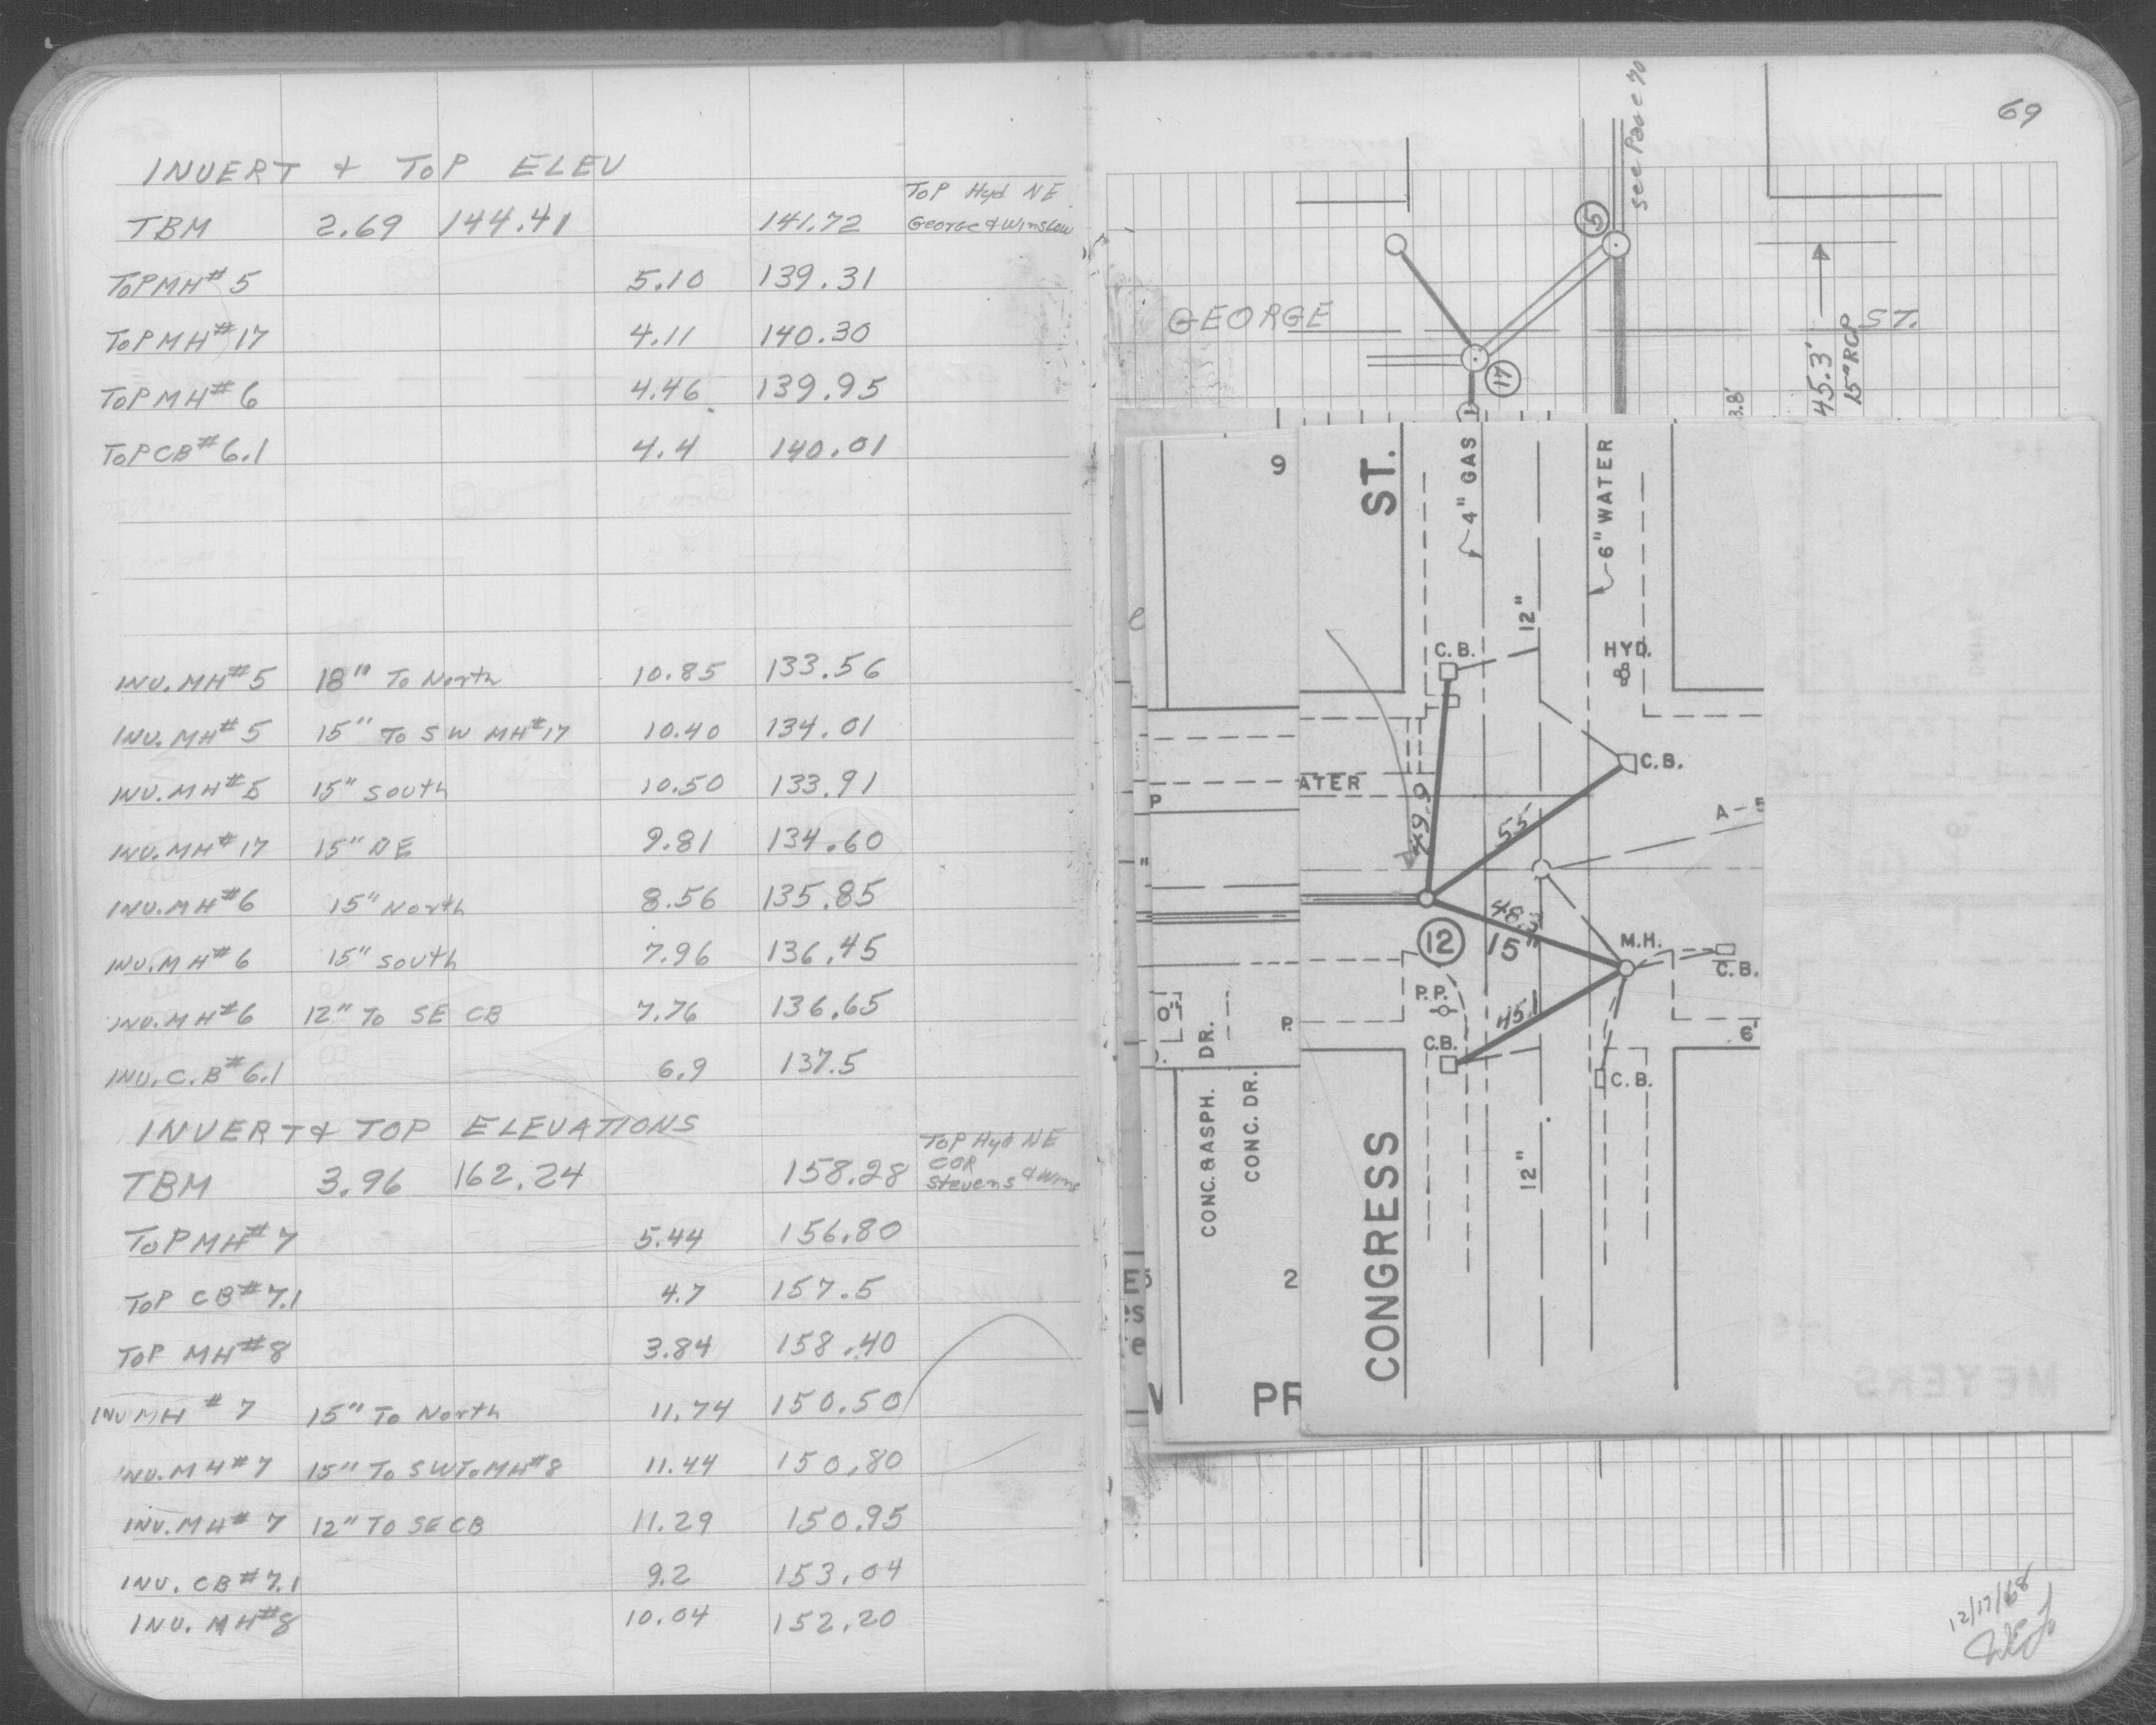 INVERT & TOP ELEV
TBM 2.69 144.41 141.72 TOP Hyd NE George & Winslow
TOP MH#5 5.10 139.31
TOP MH#17 4.11 140.30
TOP MH#6 4.46 139.95
TOP CB#6.1 4.4 140.01
INV. MH#5 18" To North 10.85 133.56
INV. MH#5 15" To SW MH#17 10.40 134.01
INV. MH#5 15" South 10.50 133.91
INV. MH#17 15" NE 9.81 134.60
INV. MH#6 15" North 8.56 135.85
INV. MH#6 15" South 7.96 136.45
INV. MH#6 12" To SE CB 7.76 136.65
INV. C.B#6.1 6.9 137.5
INVERT & TOP ELEVATIONS
TBM 3.96 162.24 158.28 TOP Hyd NE COR Stevens & Wins
TOP MH#7 5.44 156.80
TOP CB#7.1 4.7 157.5
TOP MH#8 3.84 158.40
INV MH #7 15" To North 11.74 150.50
INV. MH#7 15" To SW To MH#8 11.44 150.80
INV. MH#7 12" TO SE CB 11.29 150.95
INV. CB#7.1 9.2 153.04
INV. MH#8 10.04 152.20
69
See Page 70
5
GEORGE ST.
17
45.3'
15" RCP
3.8'
9
ST.
4" GAS
6" WATER
12"
C.B.
HYD.
C.B.
ATER
P
49.9
55
A-
48.3
12
15"
M.H.
C.B.
P.P.
45.1
C.B.
6'
C.B.
P.
DR.
CONC. & ASPH.
CONC. DR.
12"
CONGRESS
2
PR
MEYERS
12/17/68